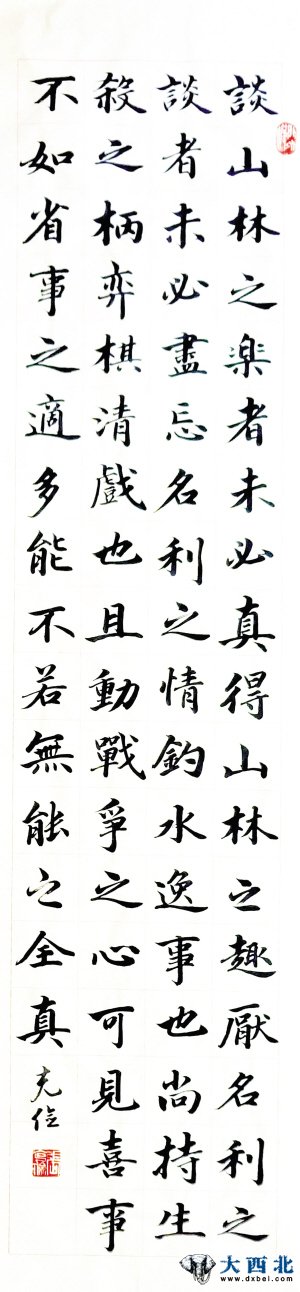 談山林之楽者未必真得山林之趣厭名利之
談者未必盡忘名利之情釣水逸事也尚持生
殺之柄弈棋清戲也且動戰爭之心可見喜事
不如省事之適多能不若無能之全真
大西北
www.dxbei.com